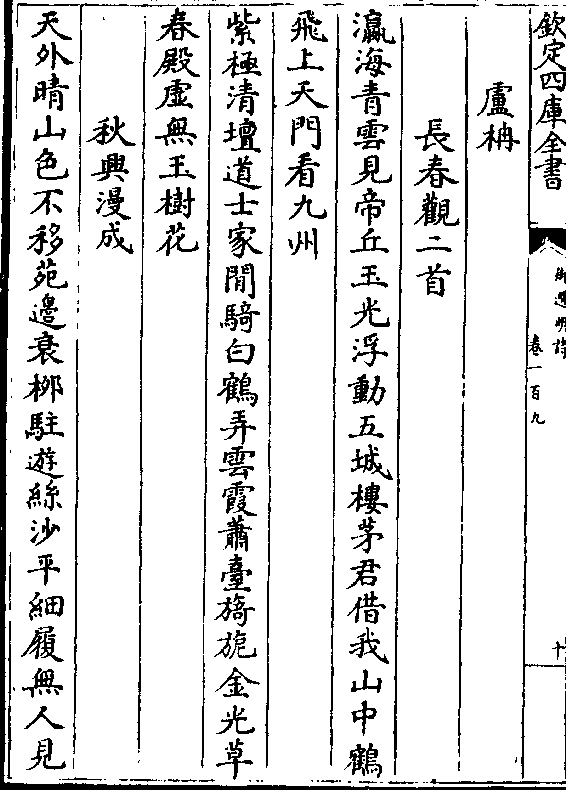 欽定四庫全書
御選明詩
卷一百九
十
盧柟
長春觀二首
瀛海青雲見帝丘玉光浮動五城樓茅君借我山中鶴
飛上天門看九州
紫極清壇道士家閒騎白鶴弄雲霞蕭臺旖旎金光草
春殿虛無玉樹花
秋興漫成
天外晴山色不移苑邊衰柳駐遊絲沙平細履無人見